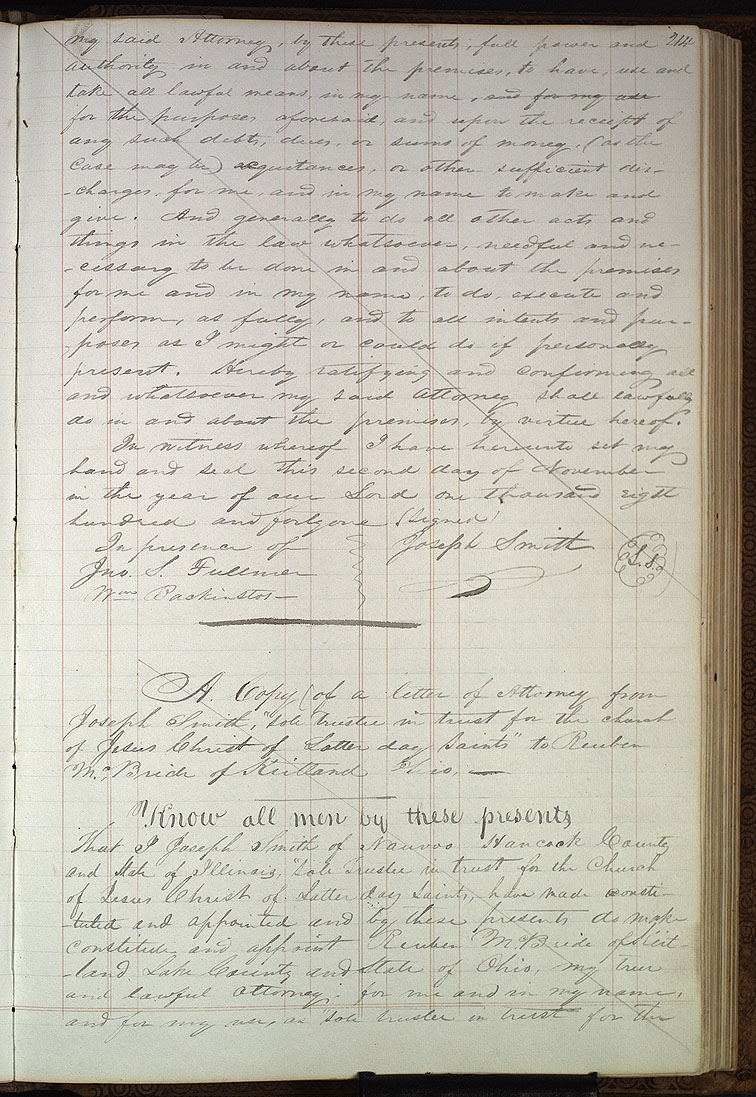 my said Attorney, by these presents, full power and 214
authority in and about the premises, to have, use and
take all lawful means, in my name, and for my use
for the purposes aforesaid, and upon the receipt of
any such debts, dues, or sums of money, (as the
case may be) acquitances, or other sufficient dis-
-charges, for me, and in my name to make and
give. And generally to do all other acts and
things in the law whatsoever, needful and ne-
-cessary to be done in and about the premises
for me and in my name, to do, execute and
perform, as fully, and to all intents and pur-
-poses as I might or could do if personally
present. Hereby ratifying and confirming all
and whatsoever my said Attorney shall lawfully
do in and about the premises, by virtue hereof.
In witness whereof I have hereunto set my
hand and seal this second day of November
in the year of our Lord one thousand eigth
hundred and forty one (signed)
In presence of Joseph Smith L. S.
Jno. S. Fullmer
Wm Backinstos—
A Copy (of a letter of Attorney from
Joseph Smith, "sole trustee in trust for the church
of Jesus Christ of Latter day Saints" to Reuben
Mc,Bride of Kirtland Ohio. —
Know all men by these presents
That I Joseph Smith of Nauvoo Hancock County
and State of Illinois, "Sole Trustee in trust for the Church
of Jesus Christ of Latter day Saints, have made consti-
-tuted and appointed and by these presents do make
constitute and appoint Reuben McBride of Kirt-
-land Lake County and State of Ohio, my true
and lawful Attorney; for me and in my name,
and for my use, as "sole trustee in trust for the